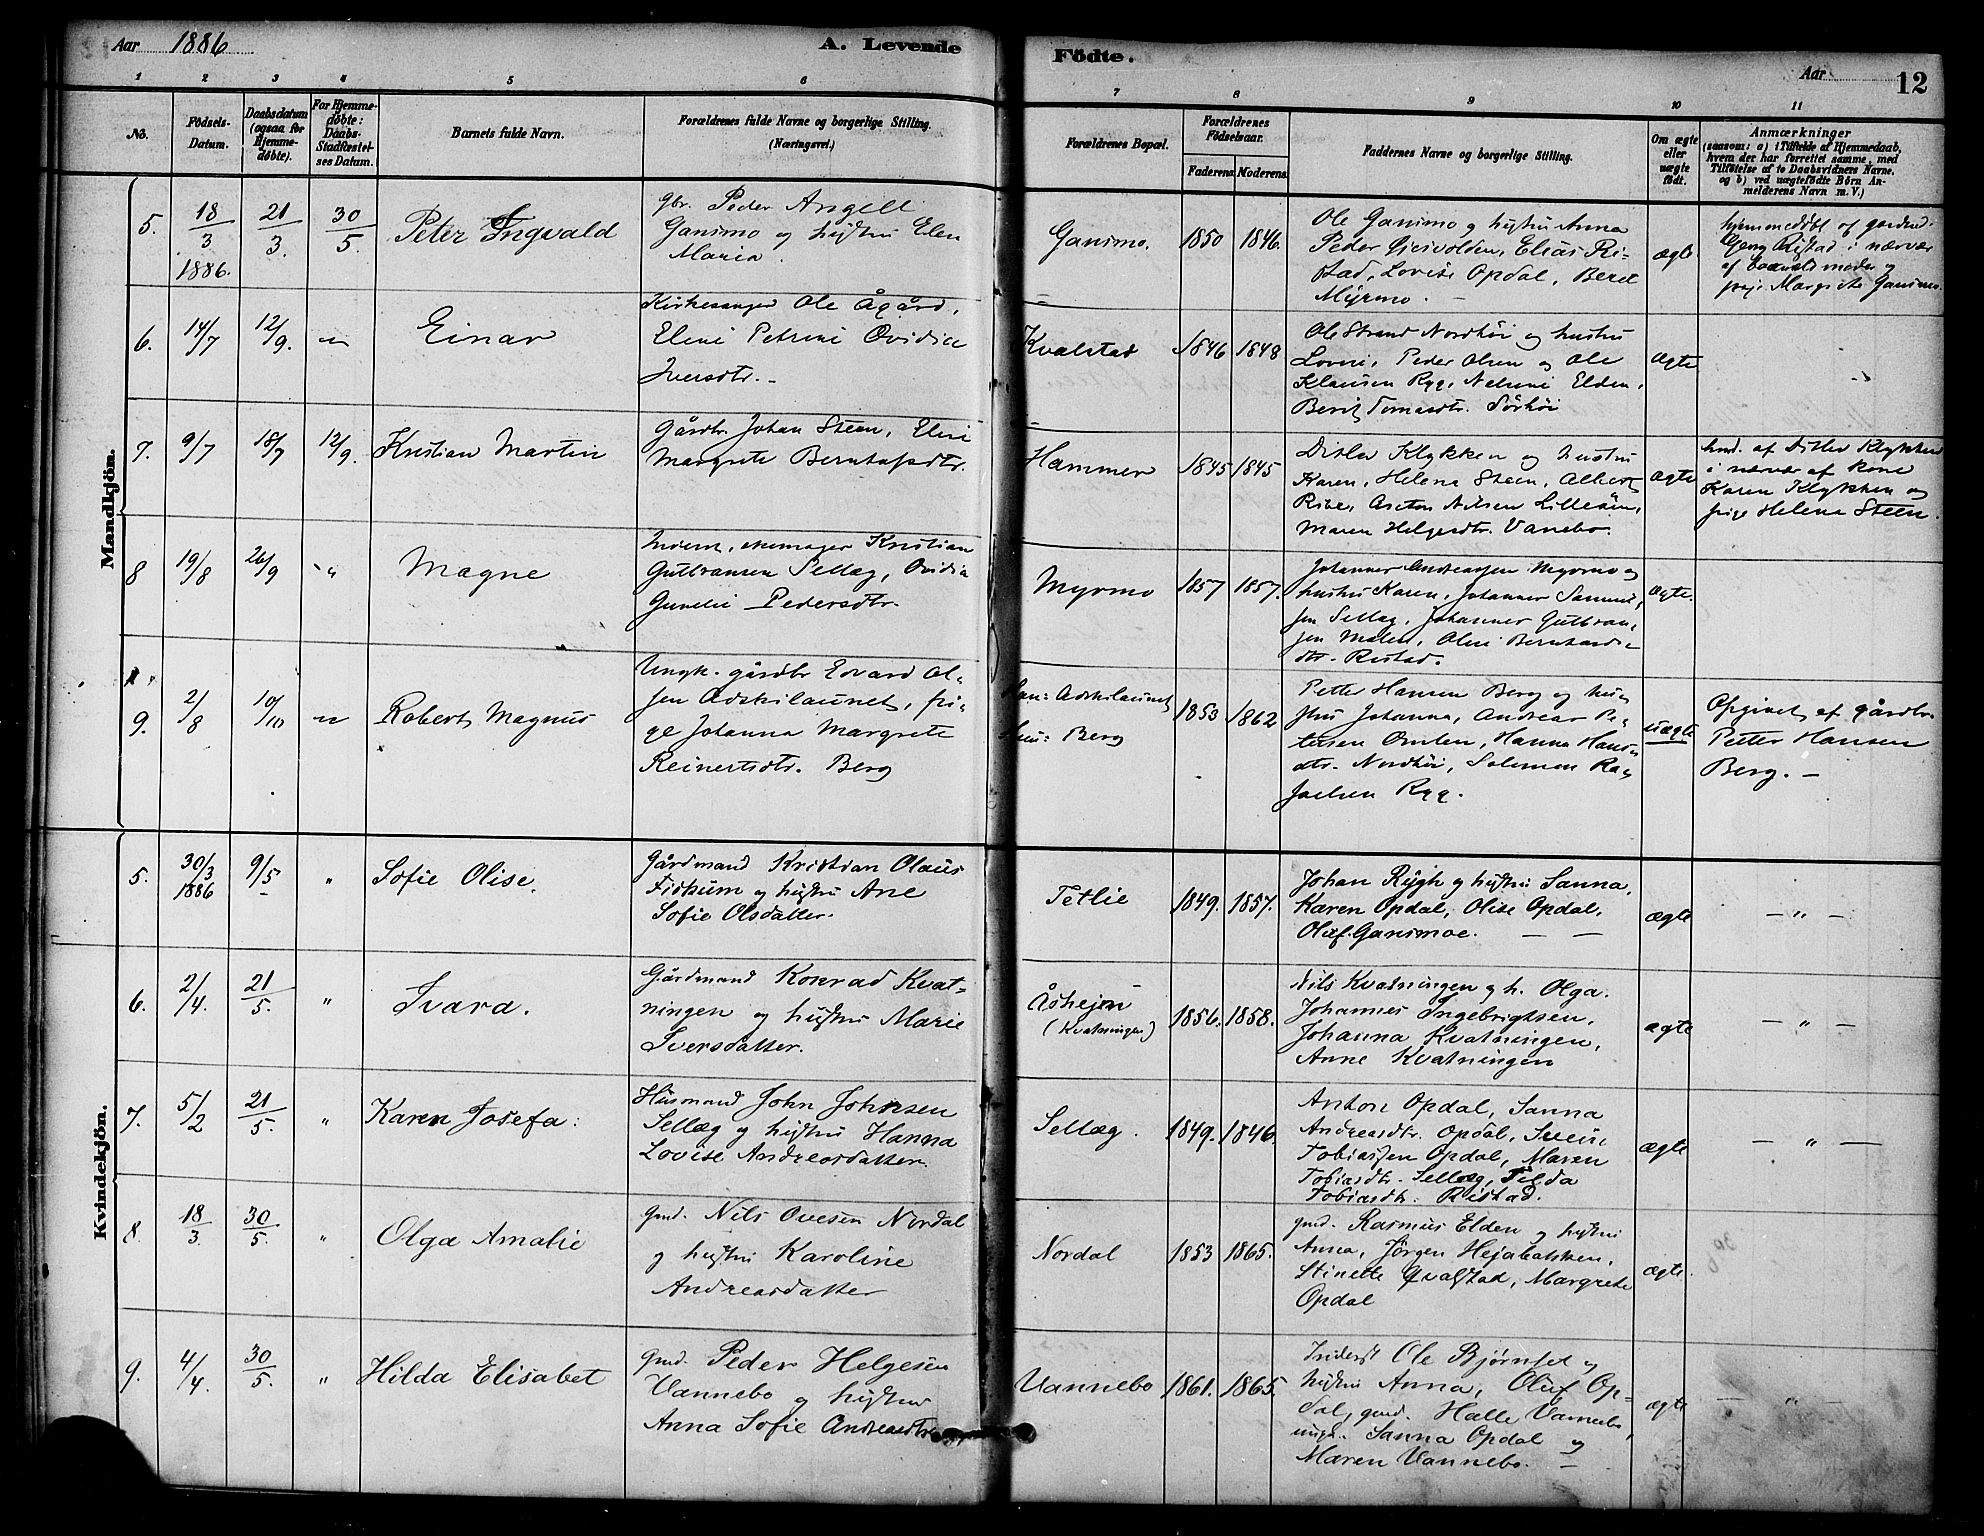 Aar 1886
A. Levende Födte.
Aar 12
1 2 3 4 5 6 7 8 9 10 11
No.
Födsels-Datum.
Daabsdatum (ogsaa for Hjemme-døbte).
For Hjemme-døbte: Daabs-Stadfæstel-ses Datum.
Barnets fulde Navn.
Forældrenes fulde Navne og borgerlige Stilling. (Næringsvei.)
Forældrenes Bopæl.
Forældrenes Födselsaar.
Faderens. Moderens.
Faddernes Navne og borgerlige Stilling.
Om ægte eller uægte født.
Anmærkninger
(saasom: a) i Tilfælde af Hjemmedaab,
hvem der har forrettet samme, med
Tilføielse af to Daabsvidners Navne.
og b) ved uægtefødte Börn An-
melderens Navn m. V.)
Mandkjön.
5. 18/3 1886. 21/3. 30/5 Peter Ingvald
gbr. Peder Angell
Ganimo og hustru Elen
Maria.
Ganimo. 1850 1846.
Ole Ganimo og hustru Anna
Peder, Elias Ri-
stad, Lovise Opdal, Beret
Myrmo. –
ægte
hjemmedøbt af gaardmd.
Georg Ristad i nærvær
af barnets moder og
pige Margrete Ganimo.
6. 14/7 12/9. " Einar
Kirkesanger Ole Ågård,
Eline Petrine Ovidia
Iversdtr. –
Kvalstad 1846 1848
Ole Strand Nordhöi og hustru
Lovise, Peder Olsen og Ole
Klausen Ryg, Elden,
Berit Tomasdtr. Sörhöi
ægte
"
7. 9/7 18/7 12/9. Kristian Martin
Gårdbr. Johan Steen, Eline
Margrete Berntsdtr.
Hammer 1845 1845
Ditlev Klykken og hustru
Karen, Helena Steen, Albert
Nilsen
Maren Helgesdtr. Vanebo.
ægte
hmd. af Ditlev Klykken
i nærvær af kone
Karen Klykken og
pige Helena Steen.
8 19/8 26/9 " Magne
Kristian
Gulbransen Sellæg, Ovidia
Gunelie Pedersdtr.
Myrmo 1857 1857.
Johannes Andreassen Myrmo og
hustru Karen, Johannes Samuel-
sen Sellæg, Johannes Gulbran-
sen Malen, Oline Bernhards-
dtr. Ristad.
ægte.
9. 2/8 10/10 " Robert Magnus
Ungk. gårdbr Edvard Ol-
sen Adskilaunet, pi-
ge Johanna Margrete
Reinertsdtr. Berg
Han: Adskilaunet
Hun: Berg
1853 1862
Petter Hansen Berg og hu-
stru Johanna, Andreas Pe-
tersen, Hanna Hans-
dtr. Nordhöi, Salemon Ra-
faelsen Ryg.
uægte
Opgivet af gårdbr.
Petter Hansen
Berg. –
Kvindekjön.
5. 30/3 1886 9/5 " Sofie Olise.
Gårdmand Kristian Olaus
Fiskum og hustru Ane
Sofie Olsdatter.
Tetlie 1849. 1857.
Johan Rygh og hustru Sanna.
Karen Opdal, Olise Opdal,
Oluf Ganimoe. – –
ægte
– " –
6. 2/4. 21/5. " Ivara.
Gårdmand Konrad Kvat-
ningen og hustru Marie
Iversdatter.
Åshejm
(Kvatningen)
1856. 1858.
Nils Kvatningen og h. Olga.
Johannes Ingebrigtsen,
Johanna Kvatningen,
Anne Kvatningen
ægte
– " –
7. 5/2 21/5. " Karen Josefa:
Husmand John Johnsen
Sellæg og hustru Hanna
Lovise Andreasdatter.
Sellæg. 1849. 1846.
Anton Opdal, Sanna
Andreasdtr. Opdal, Svein
Tobiassen Opdal, Maren
Tobiasdtr. Sellæg, Tilda
Tobiasdtr: Ristad.
ægte
– " –
8. 18/3. 30/5. " Olga Amalie
gmd. Nils Ovesen Nordal
og hustru Karoline
Andreasdatter
Nordal 1853 1865.
gmd. Rasmus Elden og hustru
Anna, Jörgen Hejabakken,
Stinette Qvalstad, Margrete
Opdal
ægte.
9. 4/4. 30/5. " Hilda Elisabet
gmd. Peder Helgesen
Vannebo og hustru
Anna Sofie Andreasdtr
Vannebo 1861. 1865.
Inderst Ole Bjørnset og
hustru Anna, Oluf Op-
dal, gmd. Halle Vannebo,
ungk. Sanna Opdal og
Maren Vannebo. –
ægte
– " –